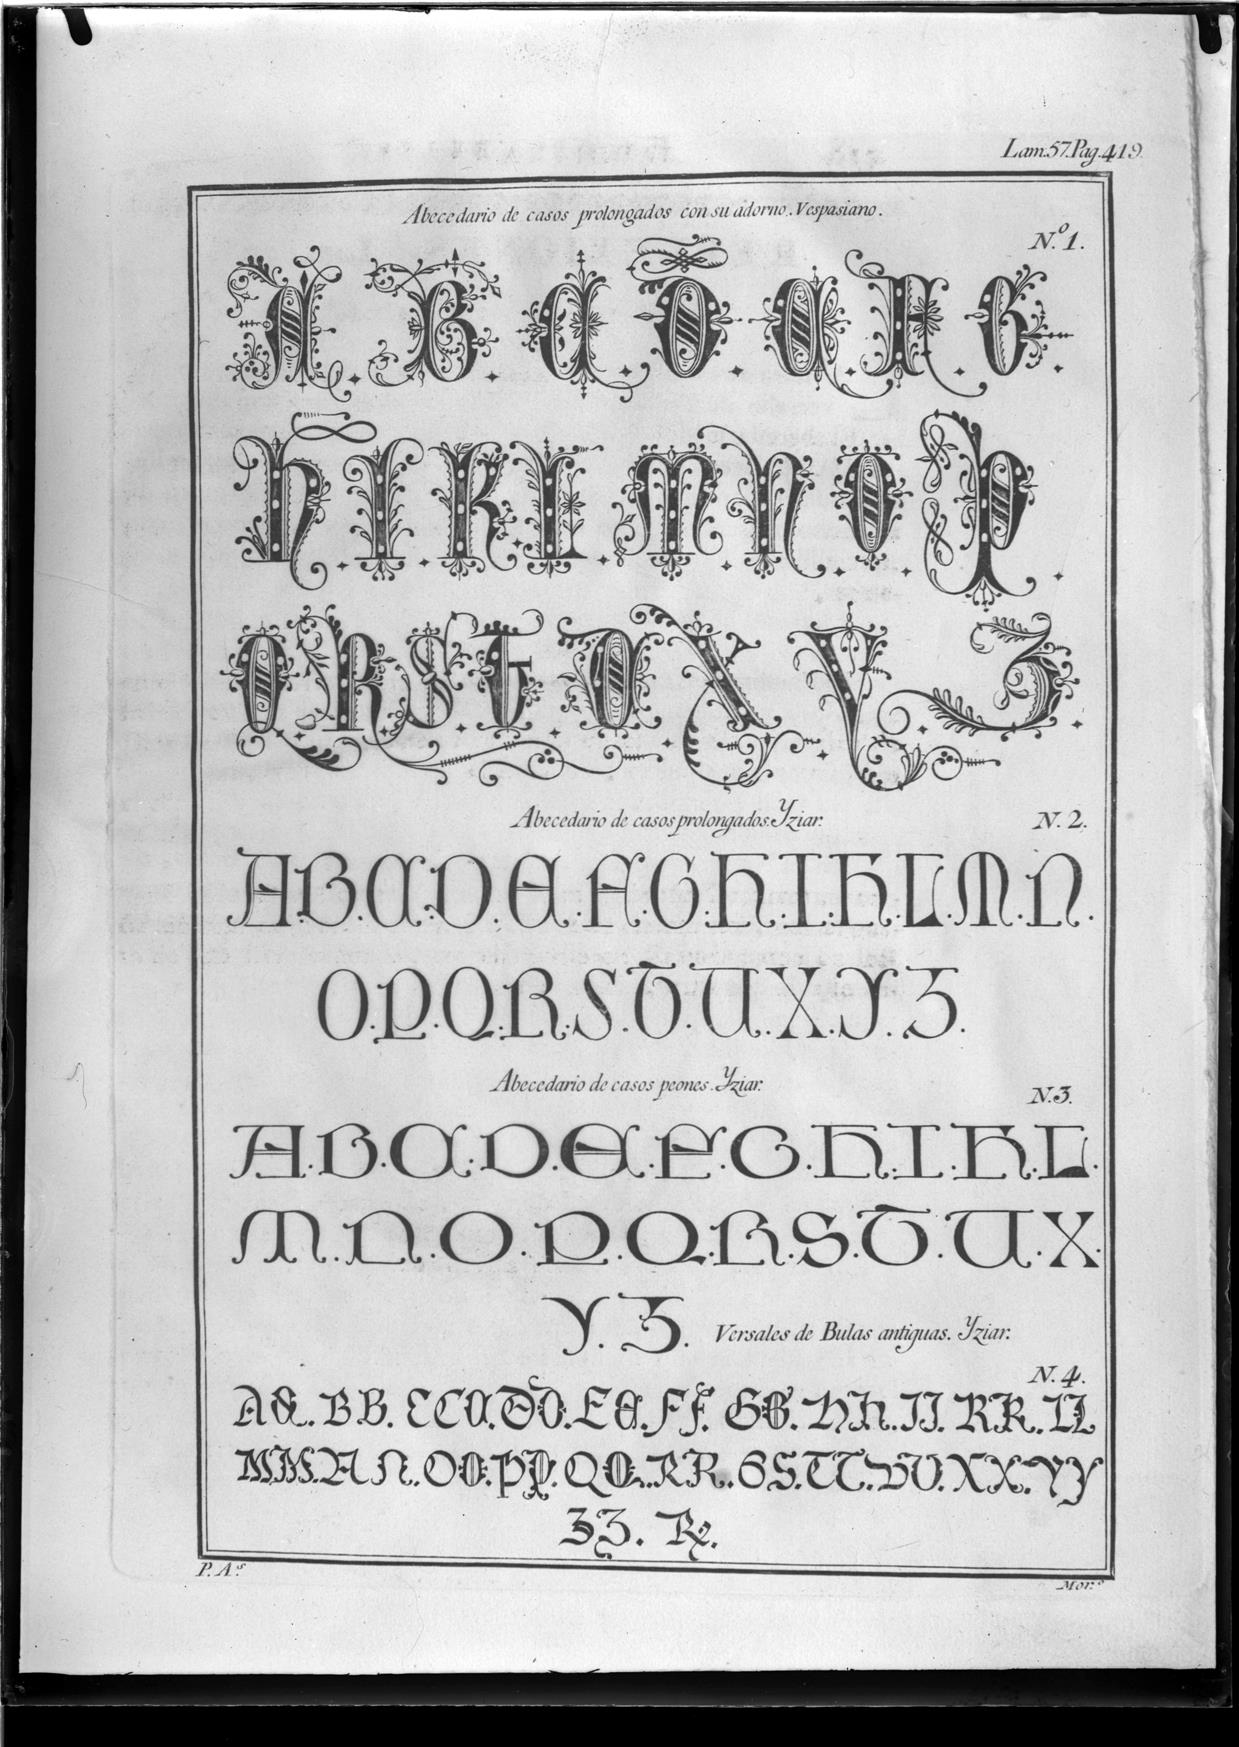 Lam.57.Pag.419.
Abecedario de casos prolongados con su adorno. Vespasiano.
N.º 1.
A. B. C D. E F. G.
H. I. K L. M N. O. P.
Q. R S. T. V. X. Y. Z.
Abecedario de casos prolongados. Yziar.
N. 2.
A.B.C.D.E.F.G.H.I.K.L.M.N.
O.P.Q.R.S.T.U.X.Y.Z.
Abecedario de casos peones. Yziar.
N.3.
A.B.C.D.E.F.G.H.I.K.L.
M.N.O.P.Q.R.S.T.U.X.
Y. Z. Versales de Bulas antiguas. Yziar.
N. 4.
AA. BB. CCC. DD. EE. FF. GG. HH. II. KK. LL
MMM. NN. OO. PP. QQ. RR. SS. TT. VU. XX. YY
ZZ. R.
P. A.s
Mor.º